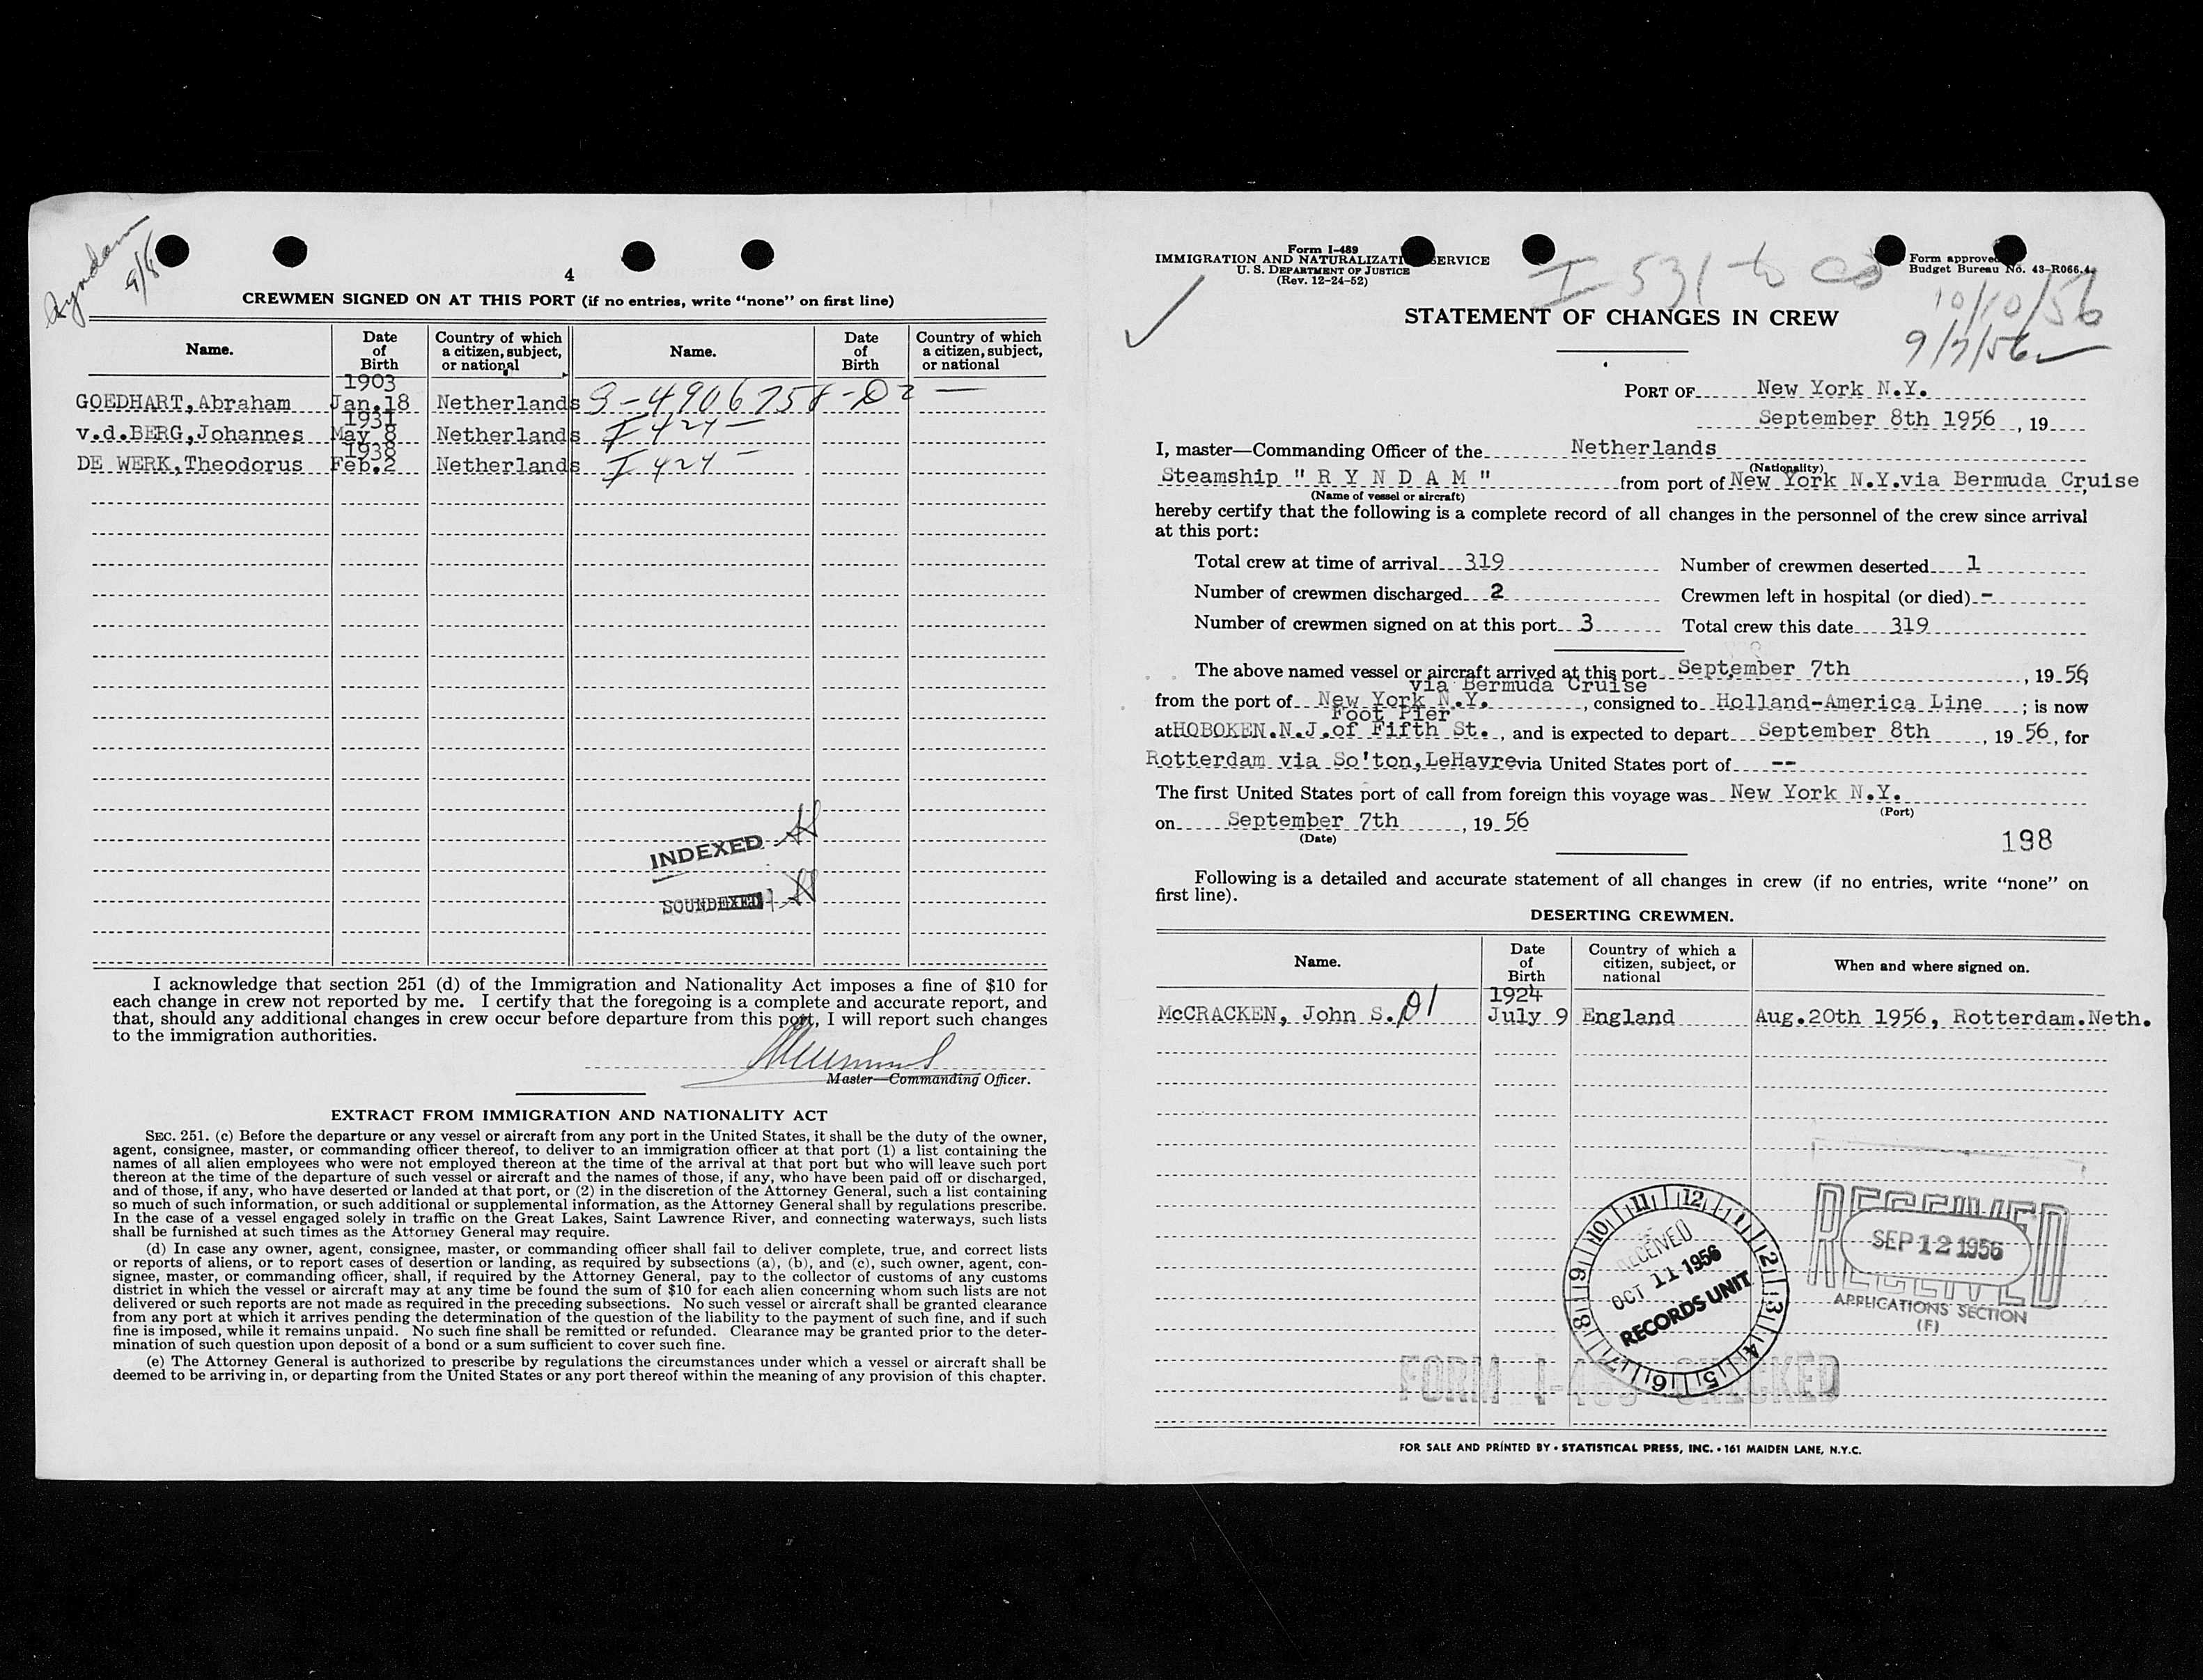 Ryndam
9/8
4
CREWMEN SIGNED ON AT THIS PORT (if no entries, write “none” on first line)
Name. Date of Birth Country of which a citizen, subject, or national Name. Date of Birth Country of which a citizen, subject, or national
1903
GOEDHART,Abraham Jan.18 Netherlands
1931
v.d.BERG,Johannes May 8 Netherlands
1938
DE WERK,Theodorus Feb.2 Netherlands
INDEXED
SOUNDEXED
I acknowledge that section 251 (d) of the Immigration and Nationality Act imposes a fine of $10 for
each change in crew not reported by me. I certify that the foregoing is a complete and accurate report, and
that, should any additional changes in crew occur before departure from this port, I will report such changes
to the immigration authorities.
Master—Commanding Officer.
EXTRACT FROM IMMIGRATION AND NATIONALITY ACT
SEC. 251. (c) Before the departure or any vessel or aircraft from any port in the United States, it shall be the duty of the owner,
agent, consignee, master, or commanding officer thereof, to deliver to an immigration officer at that port (1) a list containing the
names of all alien employees who were not employed thereon at the time of the arrival at that port but who will leave such port
thereon at the time of the departure of such vessel or aircraft and the names of those, if any, who have been paid off or discharged,
and of those, if any, who have deserted or landed at that port, or (2) in the discretion of the Attorney General, such a list containing
so much of such information, or such additional or supplemental information, as the Attorney General shall by regulations prescribe.
In the case of a vessel engaged solely in traffic on the Great Lakes, Saint Lawrence River, and connecting waterways, such lists
shall be furnished at such times as the Attorney General may require.
(d) In case any owner, agent, consignee, master, or commanding officer shall fail to deliver complete, true, and correct lists
or reports of aliens, or to report cases of desertion or landing, as required by subsections (a), (b), and (c), such owner, agent, con-
signee, master, or commanding officer, shall, if required by the Attorney General, pay to the collector of customs of any customs
district in which the vessel or aircraft may at any time be found the sum of $10 for each alien concerning whom such lists are not
delivered or such reports are not made as required in the preceding subsections. No such vessel or aircraft shall be granted clearance
from any port at which it arrives pending the determination of the question of the liability to the payment of such fine, and if such
fine is imposed, while it remains unpaid. No such fine shall be remitted or refunded. Clearance may be granted prior to the deter-
mination of such question upon deposit of a bond or a sum sufficient to cover such fine.
(e) The Attorney General is authorized to prescribe by regulations the circumstances under which a vessel or aircraft shall be
deemed to be arriving in, or departing from the United States or any port thereof within the meaning of any provision of this chapter.
Form I-489
IMMIGRATION AND NATURALIZATI SERVICE
U. S. DEPARTMENT OF JUSTICE
(Rev. 12-24-52)
Form approved
Budget Bureau No. 43-R066.4
I-531 to CO
10/10/56
9/7/56
STATEMENT OF CHANGES IN CREW
PORT OF New York N.Y.
September 8th 1956 , 19
I, master—Commanding Officer of the Netherlands
(Nationality)
Steamship " R Y N D A M " from port of New York N.Y.via Bermuda Cruise
(Name of vessel or aircraft)
hereby certify that the following is a complete record of all changes in the personnel of the crew since arrival
at this port:
Total crew at time of arrival 319 Number of crewmen deserted 1
Number of crewmen discharged 2 Crewmen left in hospital (or died) -
Number of crewmen signed on at this port 3 Total crew this date 319
The above named vessel or aircraft arrived at this port September 7th , 19 56
via Bermuda Cruise
from the port of New York N.Y. , consigned to Holland-America Line ; is now
Foot Pier
at HOBOKEN.N.J.of Fifth St. , and is expected to depart September 8th , 19 56, for
Rotterdam via So'ton,LeHavre via United States port of --
The first United States port of call from foreign this voyage was New York N.Y.
(Port)
on September 7th , 19 56
(Date)
198
Following is a detailed and accurate statement of all changes in crew (if no entries, write “none” on
first line).
DESERTING CREWMEN.
Name. Date of Birth Country of which a citizen, subject, or national When and where signed on.
1924
McCRACKEN, John S. D1 July 9 England Aug.20th 1956, Rotterdam.Neth.
RECEIVED
SEP 12 1956
APPLICATIONS SECTION
(F)
RECEIVED
OCT 11 1956
RECORDS UNIT
12 1 2 3 4 5 6 7 8 9 10 11
FORM I-489 CHECKED
FOR SALE AND PRINTED BY • STATISTICAL PRESS, INC. • 161 MAIDEN LANE, N.Y.C.